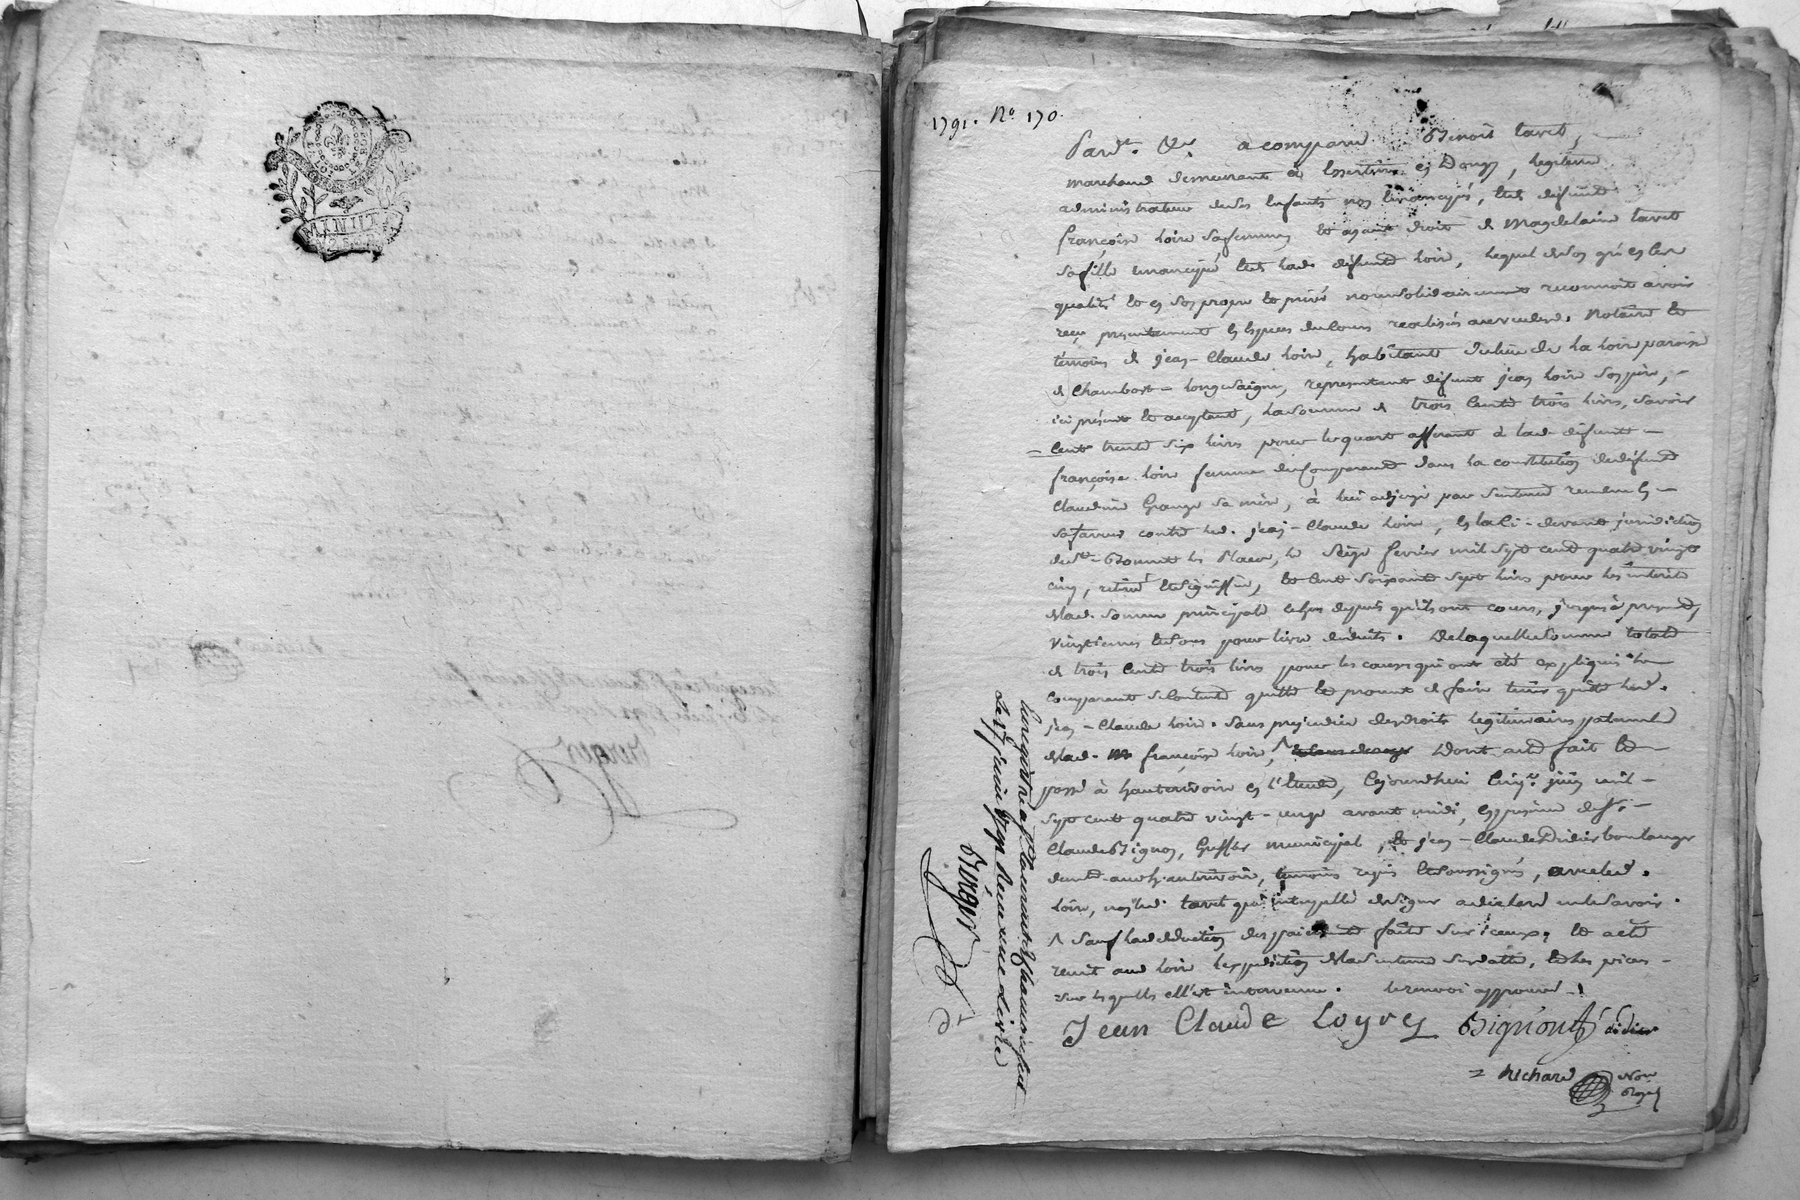 MINUTE
1791. No 170.
Pard.t &c. a comparu Benoit tavet,
marchand demeurant à Essertine en Donzy, legitime
administrateur de ses Enfants non Emancipés, Et de defunte
françoise Loire sa femme, et ayant droit de Magdelaine tavet
sa fille emancipée Et de lad. defunte Loire, lequel de son gré esdites
qualités et en son propre et privé nom solidairement reconnoit avoir
reçu presentement En Especes de Cours realisés au vu desd. Notaire et
témoins de jean-Claude Loire, habitant du lieu de la Loire paroisse
de Chambost-Longesaigne, representant defunt jean Loire son pere,
ici présent et acceptant, la somme de trois Cents trois livres, savoir
Cent trente six livres pour le quart afferant à lad. defunte
françoise Loire femme du Comparant dans la constitution de defunte
Claudine Grange sa mère, à lui adjugé par sentence rendue En
sa faveur contre led. jean-Claude Loire, En la Ci-devant juridiction
de St. Bonnet les Places, le seize fevrier mil sept cent quatre vingt
cinq, Et signiffiée, Et Cent soixante sept livres pour les intérêts
de lad. somme principale echus depuis qu'ils ont cours, jusques à present,
vingtiemes et sous pour livre deduits. De laquelle somme totale
de trois Cents trois livres pour les causes qui ont été expliquées le
comparant se Contente quitte et promet de faire tenir quitte led.
jean-Claude Loire. sans prejudice des droits legitimaires paternels
de lad. françoise Loire, ^ Dont acte fait et
passé à hauterivoire en l'Etude, Cejourdhui Cinq juin mil
sept cent quatre vingt-onze avant midi, En presence de Sr.
Claude Bignon, Greffier municipal, et jean-Claude Didier boulanger
dud. hauterivoire, temoins requis Et soussignés, avec led.
Loire, non led. tavet qui interpellé de signer a declaré ne le savoir.
^ sauf la deduction des paiements faits sur iceux, et acte
remit aud. Loire l'expedition de lad. sentence susdatée, Et les pieces
sur lesquelles elle est intervenue. le renvoi approuvé.
Jean Claude Loyre Bignon didier
richard Nore Royal
Enregistré a St. Laurent de Chamousset
Le 17 juin 1791 Reçu une livre
Burgos